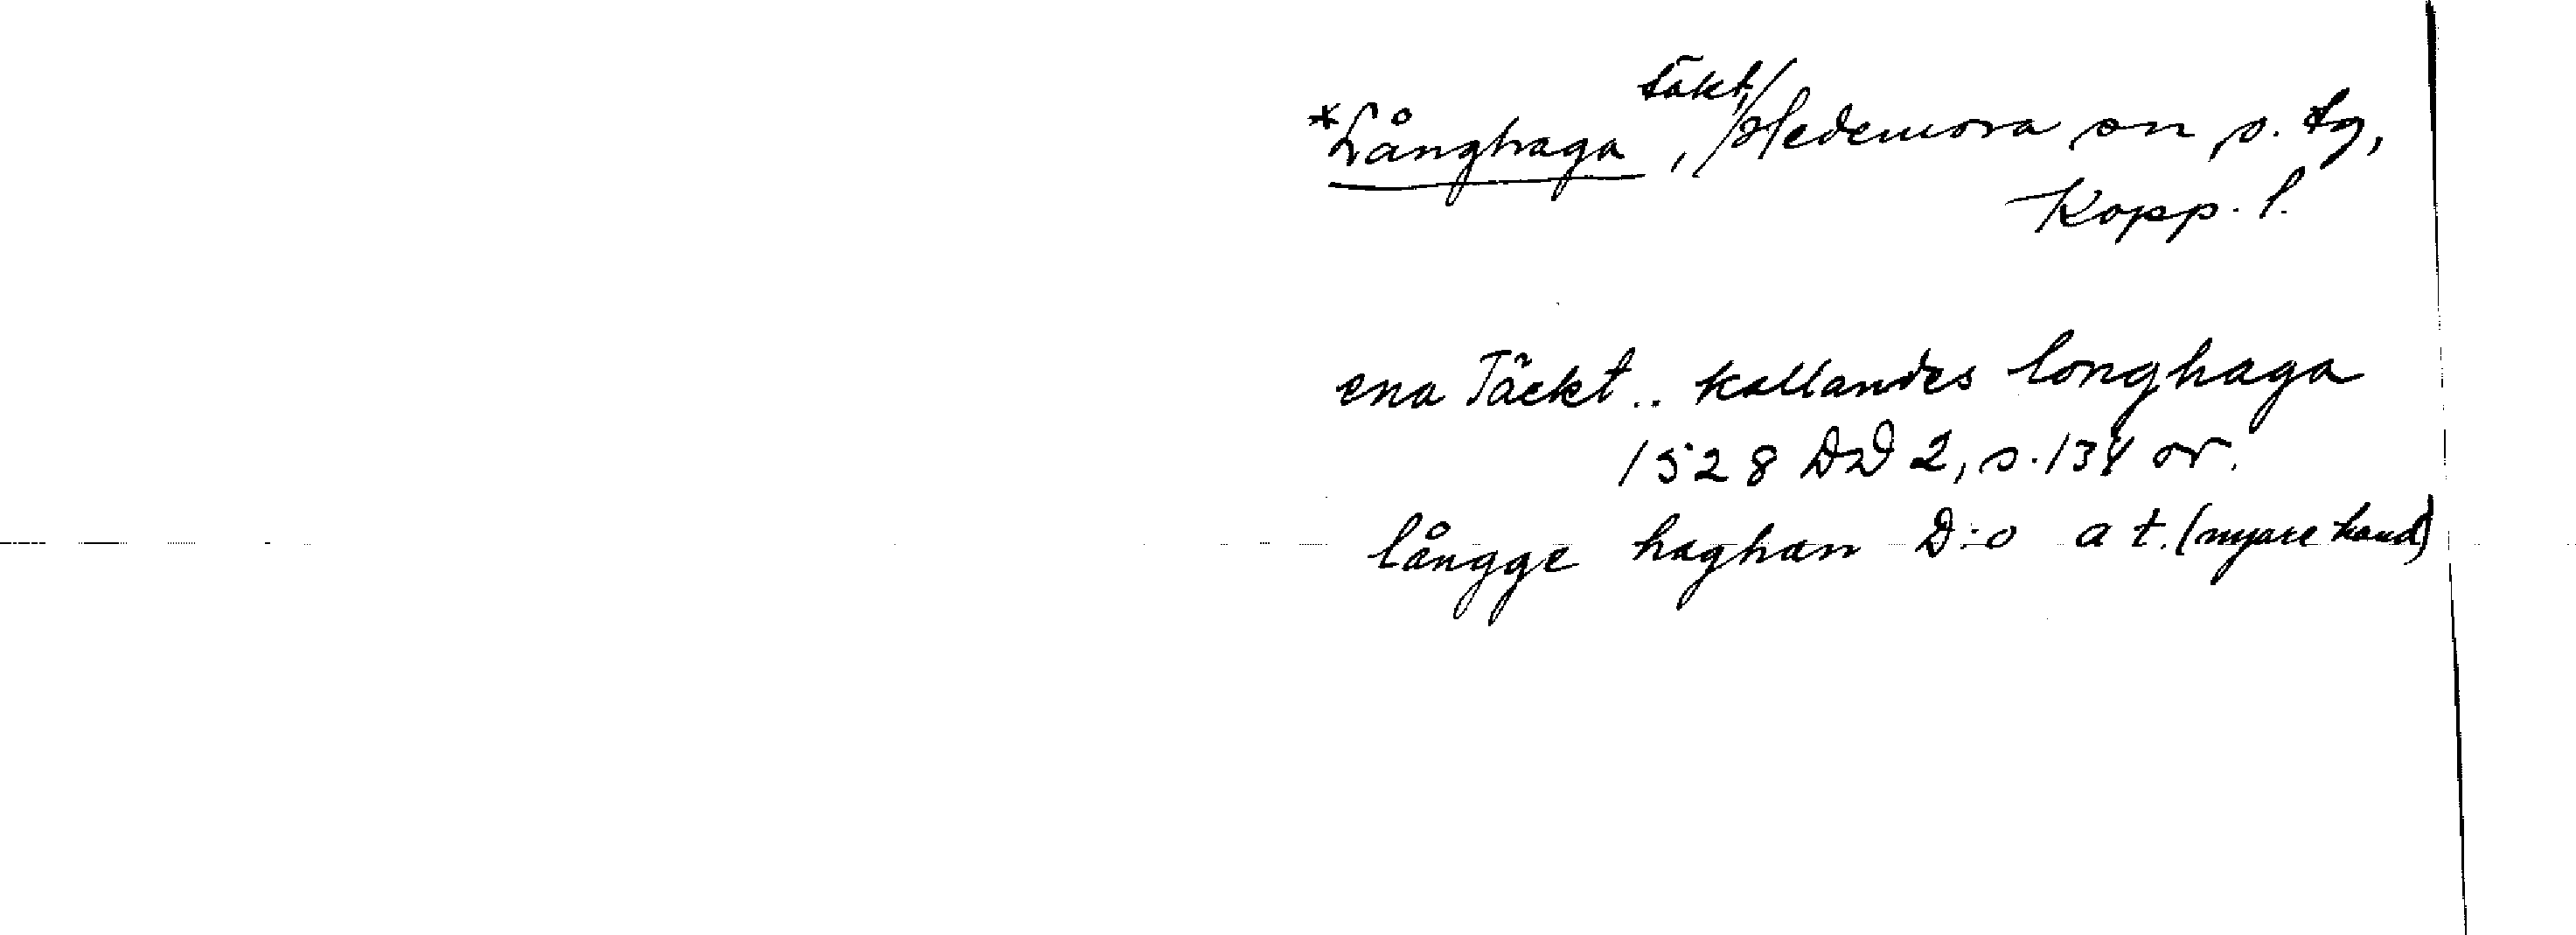 *Långhaga, täkt, Hedemora sn o. tg,
Kopp. l.
ena Täckt .. kallandes longhaga
1528 DD 2, s. 134 or.
långge haghan D:o a t. (nyare hand)